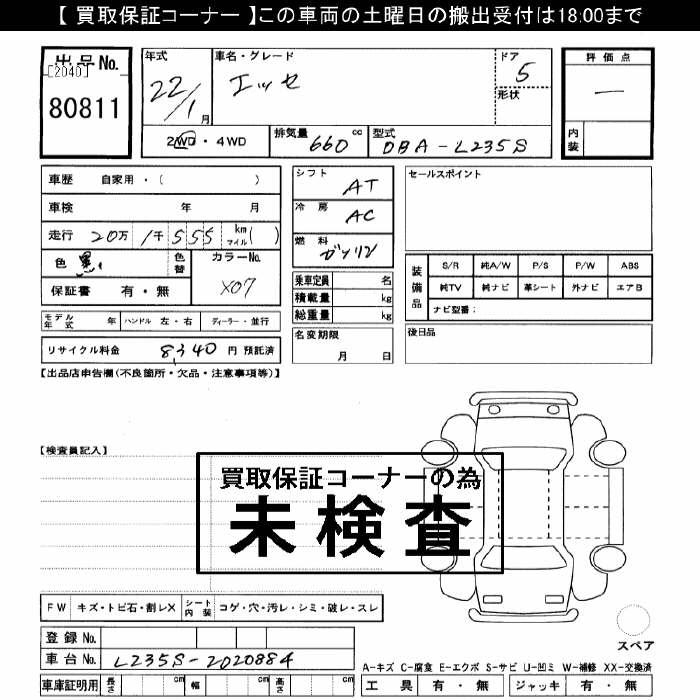 【 買取保証コーナー 】この車両の土曜日の搬出受付は18:00まで
出品No.
[2040]
80811
年式
22/1月
車名・グレード
エッセ
ドア
5
形状
評価点
—
内装
2WD・4WD
排気量 660 cc
型式 DBA-L235S
車歴 自家用・( )
車検 年 月
走行 20万 1千555 km マイル( )
色 黒
色替
カラーNo.
X07
保証書 有・無
モデル年式 年 ハンドル 左・右 ディーラー・並行
リサイクル料金 8,340 円 預託済
シフト AT
冷房 AC
燃料 ガソリン
乗車定員 名
積載量 kg
総重量 kg
名変期限
月 日
セールスポイント
装備品
S/R 純A/W P/S P/W ABS
純TV 純ナビ 革シート 外ナビ エアB
ナビ型番:
後日品
【出品店申告欄(不良箇所・欠品・注意事項等)】
【検査員記入】
買取保証コーナーの為
未検査
FW キズ・トビ石・割レX シート内装 コゲ・穴・汚レ・シミ・破レ・スレ
登録No.
車台No. L235S-2020884
車庫証明用 長さ cm 幅 cm 高さ cm
スペア
A-キズ C-腐食 E-エクボ S-サビ U-凹ミ W-補修 XX-交換済
工具 有・無 ジャッキ 有・無